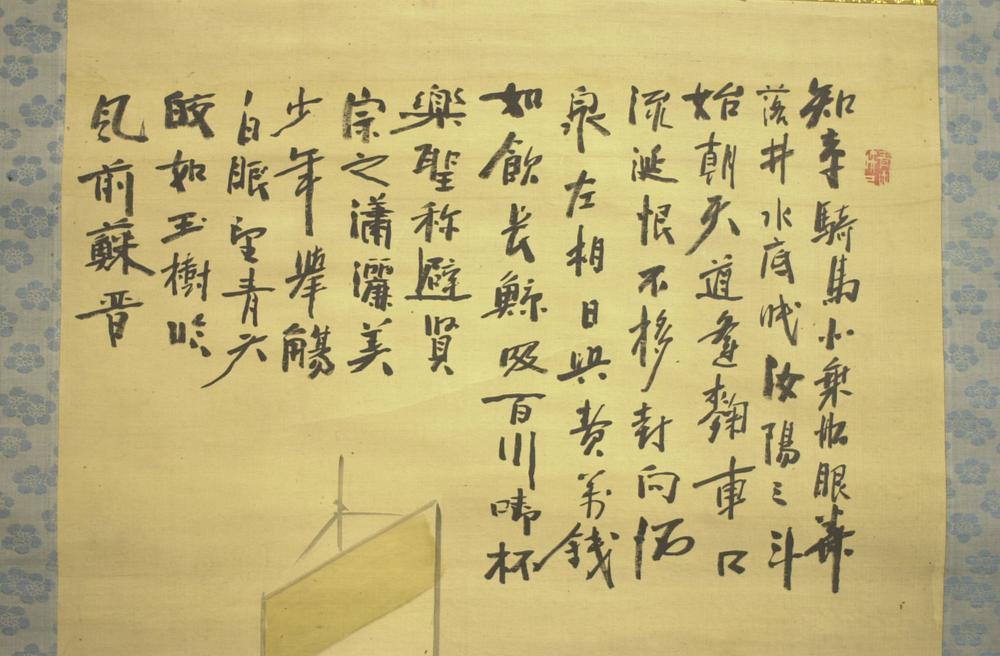 知章騎馬似乗船眼華
落井水底眠汝陽三斗
始朝天道逢麹車口
流涎恨不移封向酒
泉左相日興費萬錢
如飲長鯨吸百川啣杯
楽聖称避賢
宗之瀟灑美
少年挙觴
白眼望青天
皎如玉樹臨
風前蘇晋